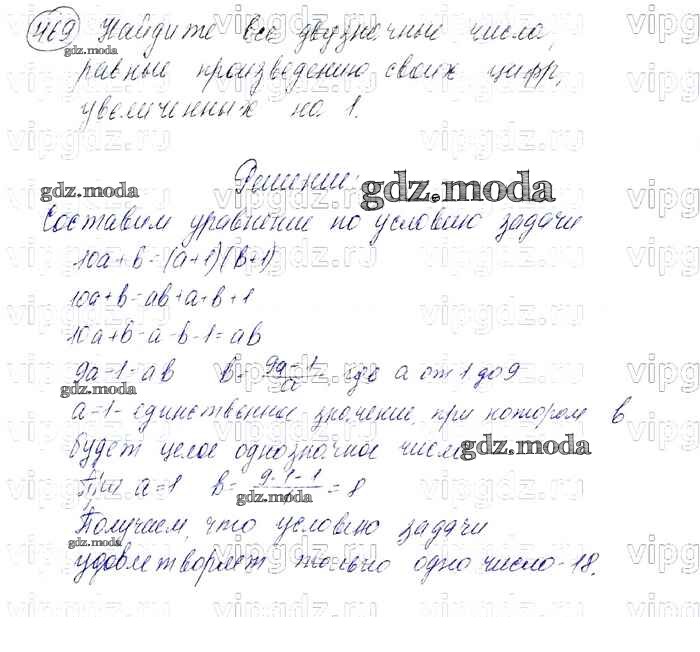 469 Найдите все двузначные числа,
gdz.moda
равные произведению своих цифр,
увеличенных на 1.
Решение:
gdz.moda
gdz.moda
Составим уравнение по условию задачи
10a+b=(a+1)(b+1)
10a+b=ab+a+b+1
10a+b-a-b-1=ab
9a-1=ab b=9a-1/a где a от 1 до 9
gdz.moda
a=1- единственное значение, при котором b
будет целое однозначное число
gdz.moda
При a=1 b=9·1-1/1=8
gdz.moda
Получаем, что условию задачи
gdz.moda
удовлетворяет только одно число-18.
vipgdz.ru